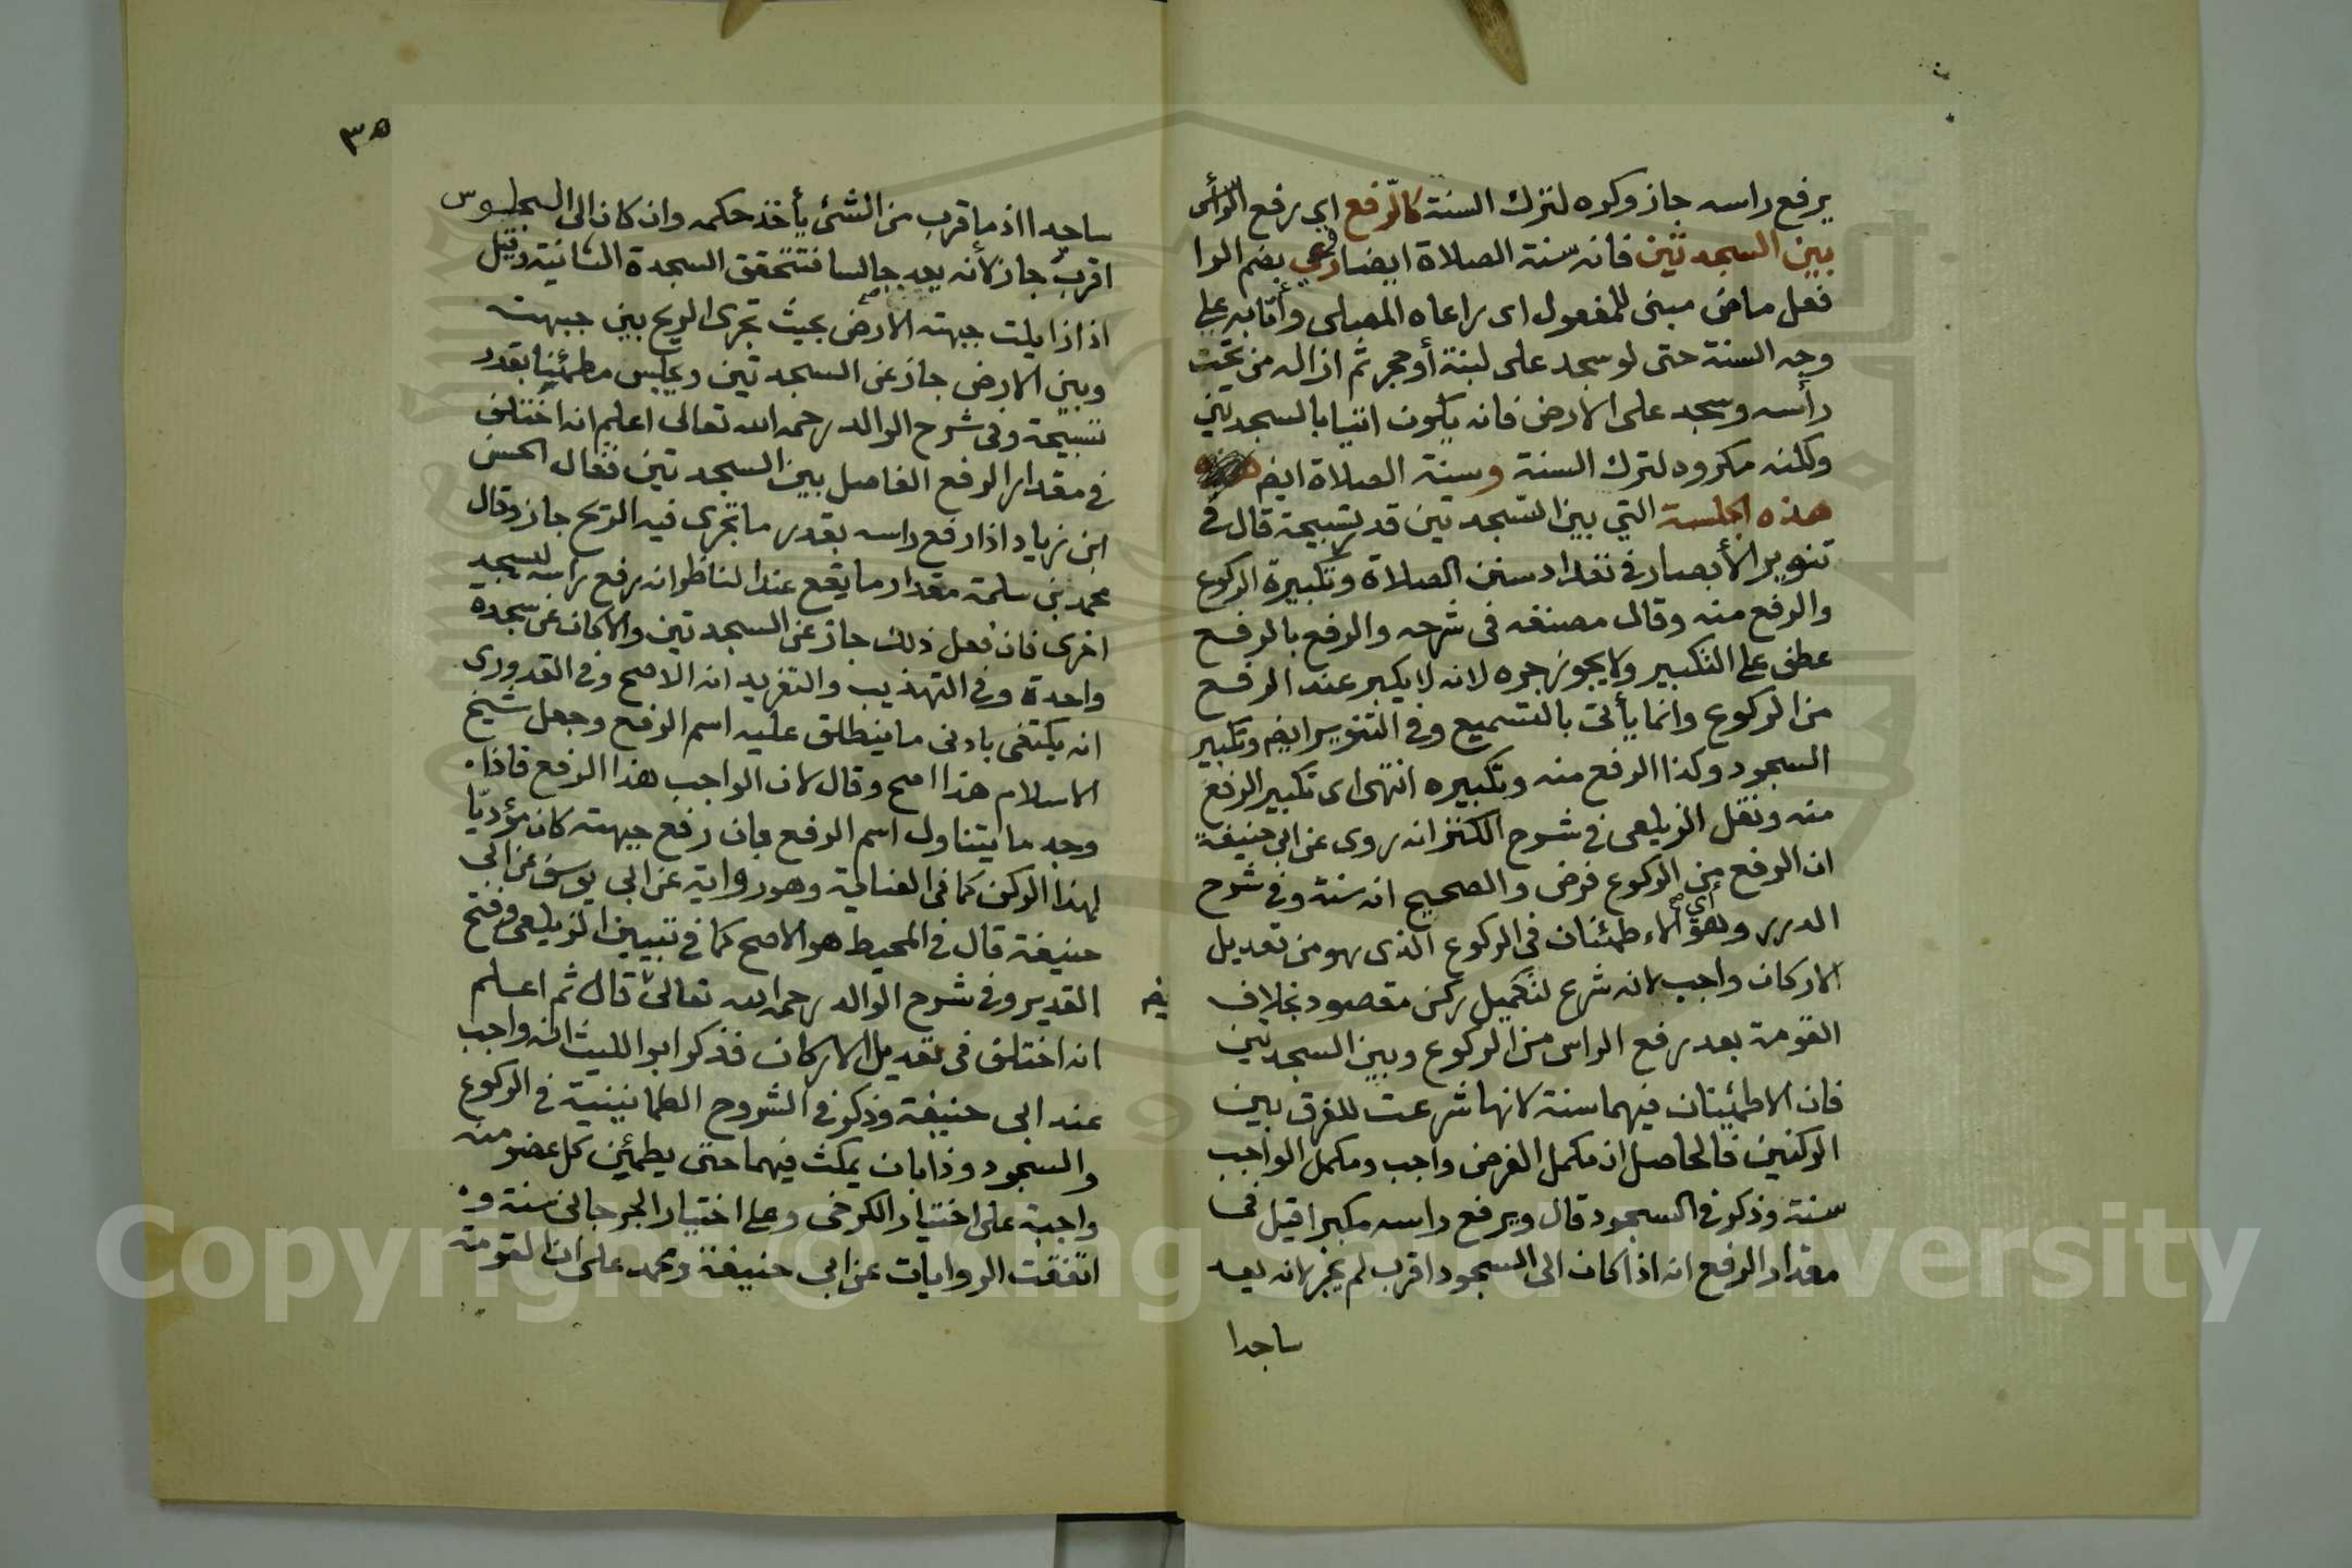 يرفع راسه جاز وكره لترك السنة كالرفع اي رفع الرأس
بين السجدتين فانه سنة الصلاة ايضا روعي بضم الرا
فعل ماض مبنى للمفعول اى راعاه المصلى وأتا به على
وجه السنة حتى لو سجد على لبنة أو حجر ثم ازاله من تحت
رأسه وسجد على الارض فانه يكون اتيا بالسجدتين
ولكنه مكروه لترك السنة وسنة الصلاة ايضـ
هذه الجلسة التي بين السجدتين قدر تسبيحة قال فى
تنوير الأبصار فى تعداد سنن الصلاة وتكبيرة الركوع
والرفع منه وقال مصنفه فى شرحه والرفع بالرفع
عطف على التكبير ولا يجوز جره لانه لا يكبر عند الرفع
من الركوع وانما يأتى بالتسميع وفى التنوير ايضـ وتكبير
السجود وكذا الرفع منه وتكبيره انتهى اى تكبير الرفع
منه ونقل الزيلعى فى شرح الكنز انه روى عن ابى حنيفة
ان الرفع من الركوع فرض والصحيح انه سنة وفى شرح
الدرر وهو أي الاءطمئنان فى الركوع الذى هو من تعديل
الاركان واجب لانه شرع لتكميل ركن مقصود بخلاف
القومة بعد رفع الراس من الركوع وبين السجدتين
فان الاطمئينان فيهما سنة لانها شرعت للفرق بين
الركنين فالحاصل ان مكمل الفرض واجب ومكمل الواجب
سنة وذكر فى السجود قال ويرفع راسه مكبرا قيل فى
مقدار الرفع انه اذا كان الى السجود اقرب لم يجز لانه يعد
ساجدا
٣٥
ساجدا اذ ما قرب من الشئ يأخذ حكمه وان كان الى الجلوس
اقرب جاز لأنه يعد جالسا فتتحقق السجدة الثانية وقيل
اذ ازايلت جبهته الارض بحيث تجرى الريح بين جبهته
وبين الارض جاز عن السجدتين ويجلس مطمئينا بقدر
تسبيحة وفى شرح الوالد رحمه الله تعالى اعلم انه اختلف
فى مقدار الرفع الفاصل بين السجدتين فقال الحسن
ابن زياد اذا رفع راسه بقدر ما تجرى فيه الريح جاز وقال
محمد بن سلمة مقدار ما يقع عند الناظر انه رفع راسه ليسجد
اخرى فان فعل ذلك جاز عن السجدتين والا كان عن سجدة
واحدة وفى التهذيب والتفريد انه الاصح وفى القدورى
انه يكتفى بادنى ما ينطلق عليه اسم الرفع وجعل شيخ
الاسلام هذا اصح وقال لان الواجب هذا الرفع فاذا
وجد ما يتناول اسم الرفع بان رفع جبهته كان مؤديّا
لهذا الركن كما فى العناية وهو رواية عن ابى يوسف عن ابى
حنيفة قال فى المحيط هو الاصح كما فى تبيين الزيلعى وفتح
القدير وفى شرح الوالد رحمه الله تعالى قال ثم اعلم
انه اختلف فى تعديل الاركان فذكر ابو الليث انه واجب
عند ابى حنيفة وذكر فى الشروح الطمانينية فى الركوع
والسجود وذا بان يمكث فيهما حتى يطمئين كل عضو منه
واجبة على اختيار الكرخى وعلى اختيار الجرجانى سنة و
اتفقت الروايات عن ابى حنيفة ومحمد على ان القومة
Copyright © King Saud University